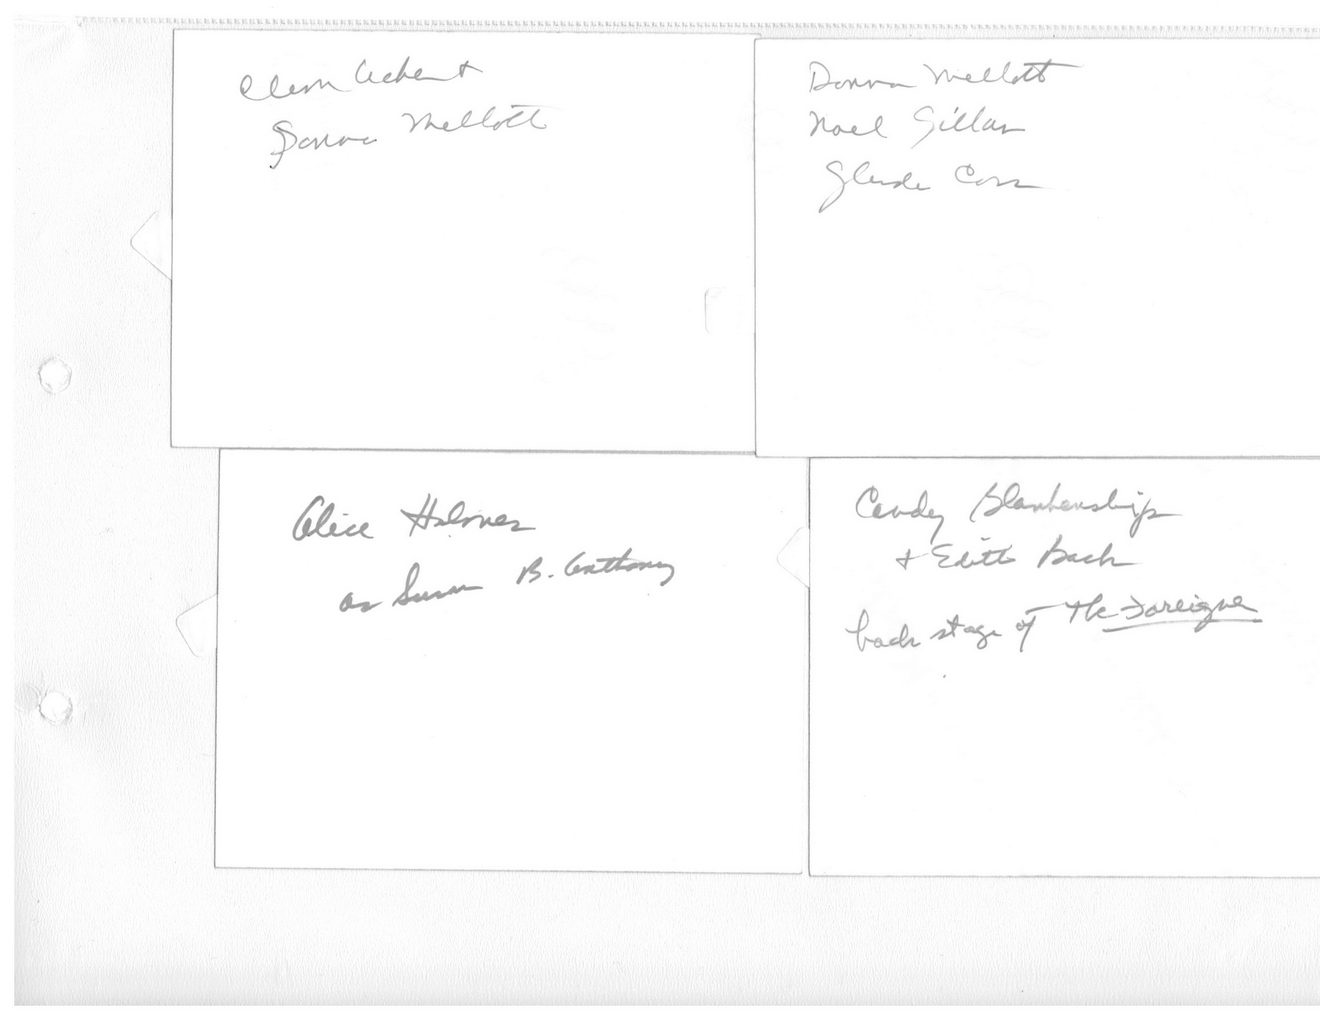 Clem
Donna Mellott
Donna Mellott
Noel Gillan
Glenda
Alice Holmes
as Susan B. Anthony
Candy Blankenship
+ Edith Bach
back stage of The Foreigner